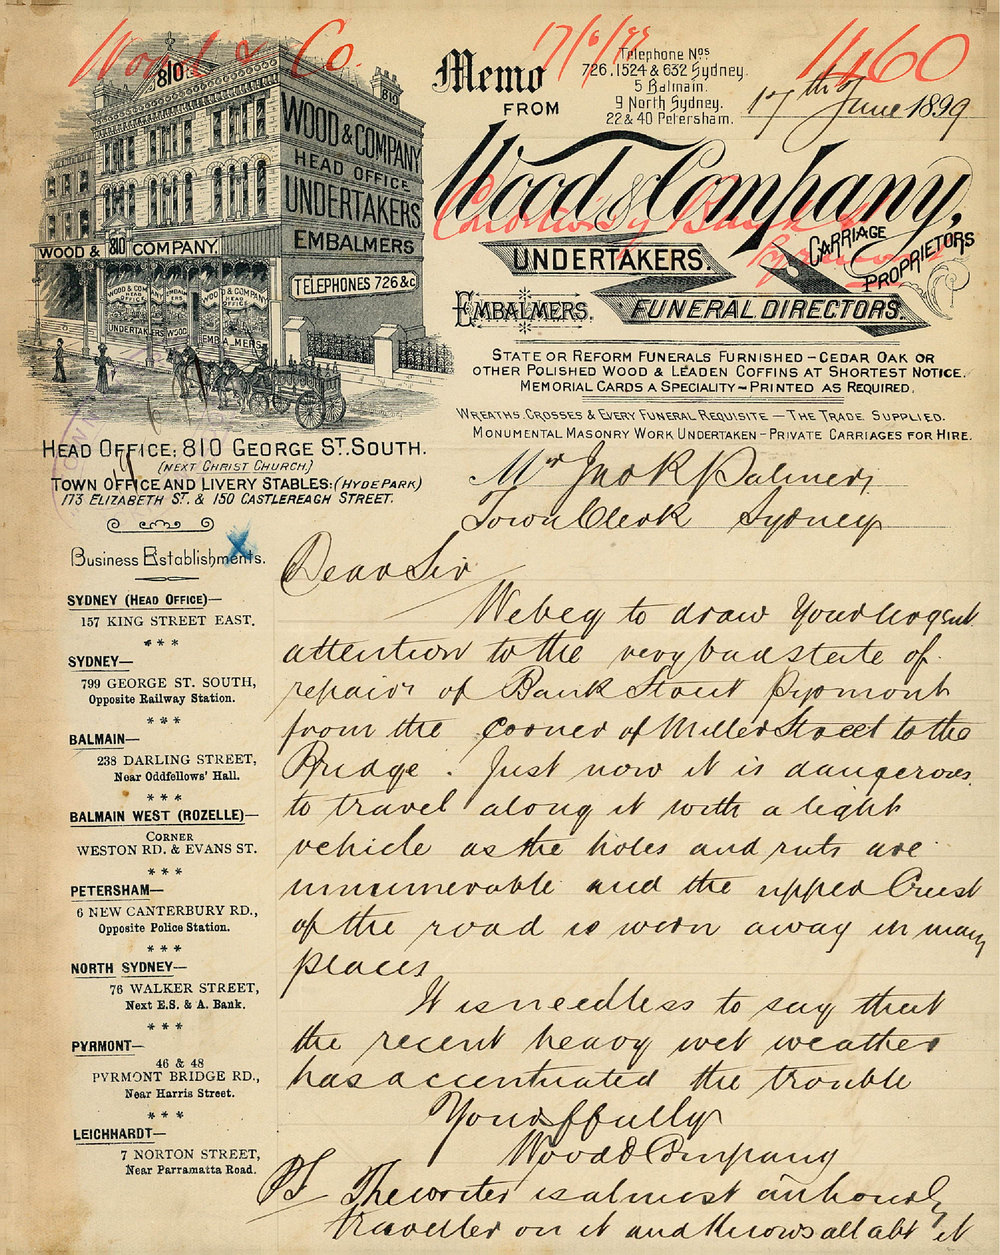 Wood & Co.
17/6/99
11460
810
810
WOOD & COMPANY
HEAD OFFICE
UNDERTAKERS
EMBALMERS
TELEPHONES 726 & C
WOOD & 810 COMPANY.
WOOD & COMPANY
HEAD OFFICE
UNDERTAKERS
WOOD & COMPANY
HEAD OFFICE
EMBALMERS
Memo
FROM
Telephone Nos:
726, 1524 & 632 Sydney.
5 Balmain.
9 North Sydney.
22 & 40 Petersham.
17th June 1899
Wood & Company,
Condition of Bank St
Pyrmont
UNDERTAKERS.
CARRIAGE
PROPRIETORS
EMBALMERS.
FUNERAL DIRECTORS.
STATE OR REFORM FUNERALS FURNISHED – CEDAR OAK OR
OTHER POLISHED WOOD & LEADEN COFFINS AT SHORTEST NOTICE.
MEMORIAL CARDS A SPECIALITY – PRINTED AS REQUIRED.
WREATHS, CROSSES & EVERY FUNERAL REQUISITE – THE TRADE SUPPLIED.
MONUMENTAL MASONRY WORK UNDERTAKEN – PRIVATE CARRIAGES FOR HIRE.
HEAD OFFICE: 810 GEORGE ST. SOUTH.
(NEXT CHRIST CHURCH.)
TOWN OFFICE AND LIVERY STABLES: (HYDE PARK)
173 ELIZABETH ST. & 150 CASTLEREAGH STREET.
Business Establishments.
SYDNEY (HEAD OFFICE)—
157 KING STREET EAST.
* * *
SYDNEY—
799 GEORGE ST. SOUTH,
Opposite Railway Station.
* * *
BALMAIN—
238 DARLING STREET,
Near Oddfellows' Hall.
* * *
BALMAIN WEST (ROZELLE)—
CORNER
WESTON RD. & EVANS ST.
* * *
PETERSHAM—
6 NEW CANTERBURY RD.,
Opposite Police Station.
* * *
NORTH SYDNEY—
76 WALKER STREET,
Next E.S. & A. Bank.
* * *
PYRMONT—
46 & 48
PYRMONT BRIDGE RD.,
Near Harris Street.
* * *
LEICHHARDT—
7 NORTON STREET,
Near Parramatta Road.
Mr Jno R Palmer,
Town Clerk Sydney
Dear Sir
We beg to draw your urgent
attention to the very bad state of
repair of Bank Street Pyrmont
from the corner of Miller Street to the
Bridge. Just now it is dangerous
to travel along it with a light
vehicle as the holes and ruts are
innumerable and the upper Crust
of the road is worn away in many
places
It is needless to say that
the recent heavy wet weather
has accentuated the trouble
Yours ffully
Wood & Company
PS The writer is almost an hourly
traveller on it and knows all abt it